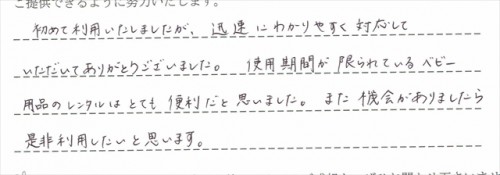 ご提供できるように努力いたします。
初めて利用いたしましたが、迅速にわかりやすく対応して
いただいてありがとうございました。使用期間が限られているベビー
用品のレンタルはとても便利だと思いました。また機会がありましたら
是非利用したいと思います。